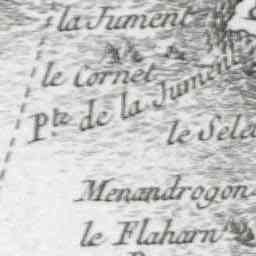 la Jument
le Cornet
Pte de la Jument
le Sele
Menandrogon
le Flaharn